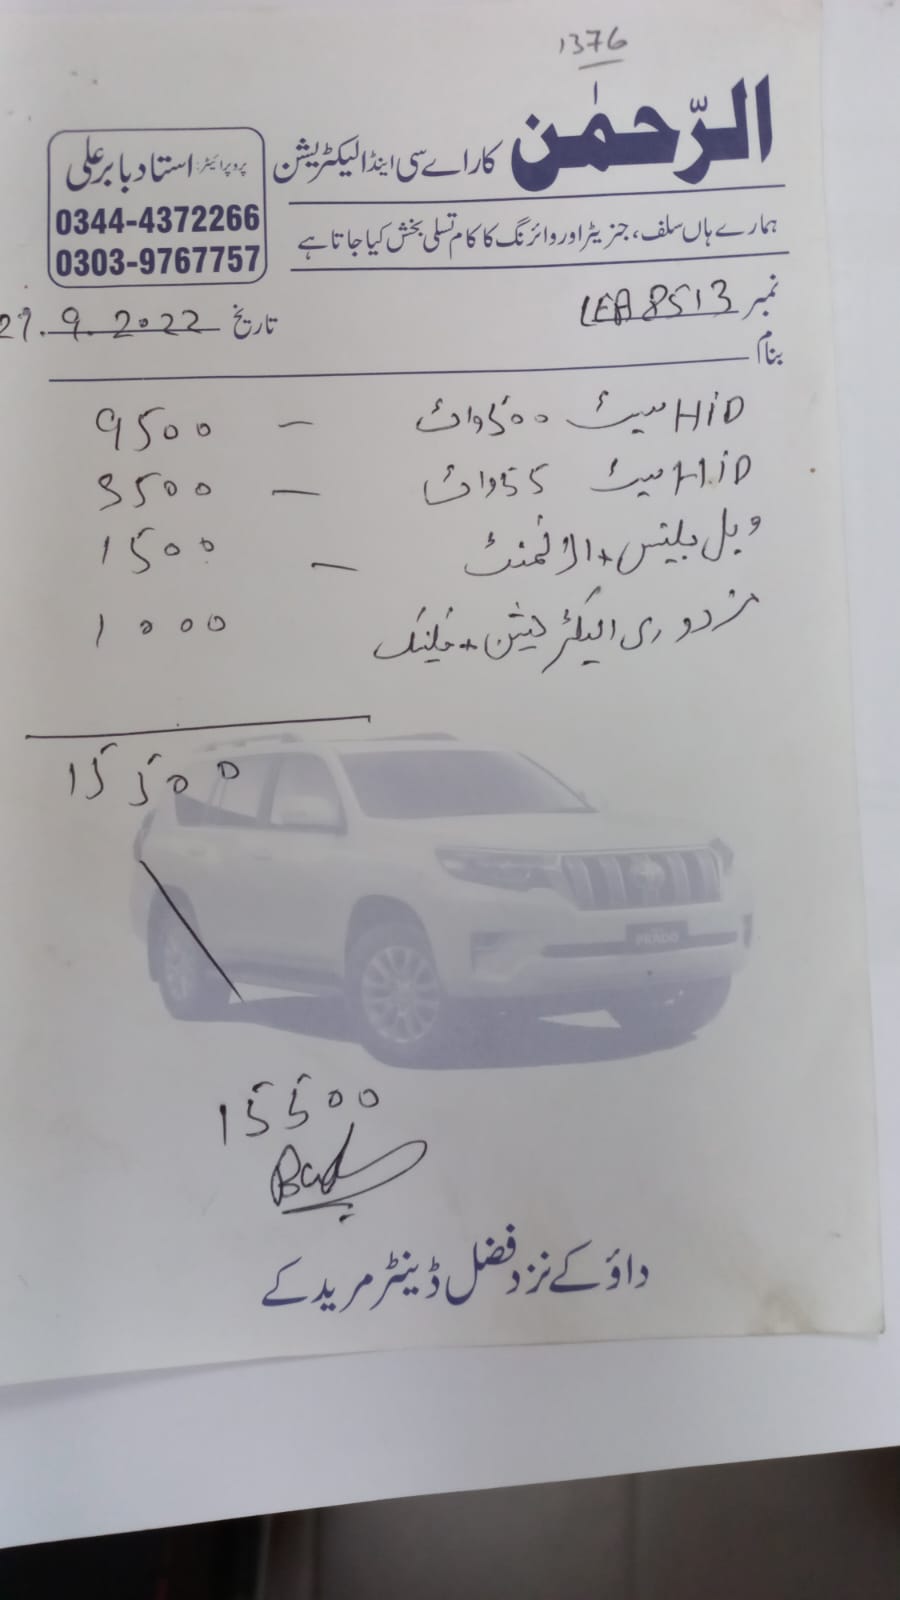 1376
الرّحمٰن کار اے سی اینڈ الیکٹریشن
پروپرائٹر: استاد بابر علی
0344-4372266
0303-9767757
ہمارے ہاں سلف، جنریٹر اور وائرنگ کا کام تسلی بخش کیا جاتا ہے
نمبر LEA 8513
تاریخ 29.9.2022
بنام
HiD سیٹ 500 واٹ – 9500
HiD سیٹ 55 واٹ – 3500
وہل بلینس + الائمنٹ – 1500
مزدوری الیکٹریشن + 1000
15500
15500
داؤکے نزد فضل ڈینٹر مریدکے